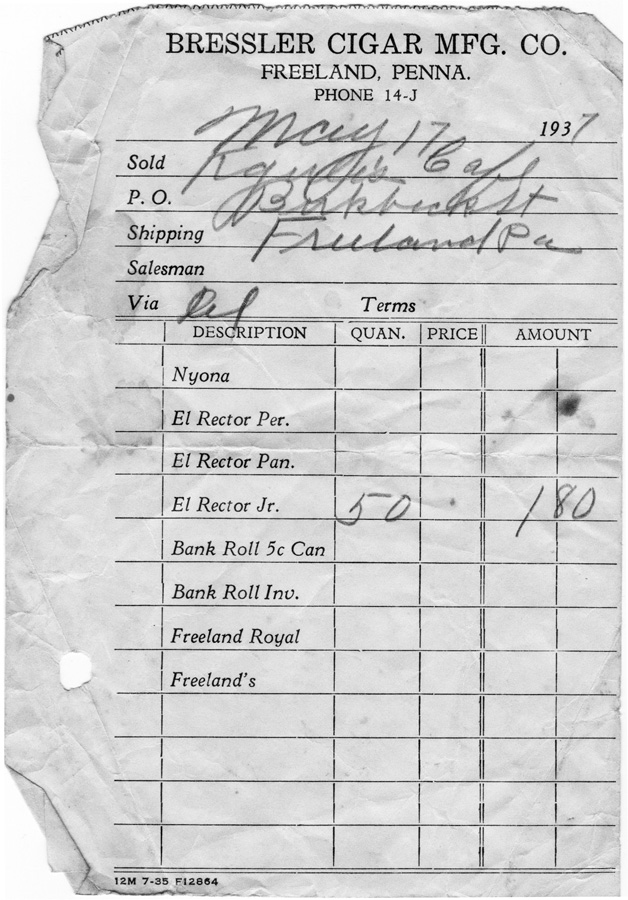 BRESSLER CIGAR MFG. CO.
FREELAND, PENNA.
PHONE 14-J
May 17 1937
Sold Cafe
P. O. St
Shipping Freeland Pa
Salesman
Via Del Terms
DESCRIPTION QUAN. PRICE AMOUNT
Nyona
El Rector Per.
El Rector Pan.
El Rector Jr. 50 1 80
Bank Roll 5c Can
Bank Roll Inv.
Freeland Royal
Freeland's
12M 7-35 F12864